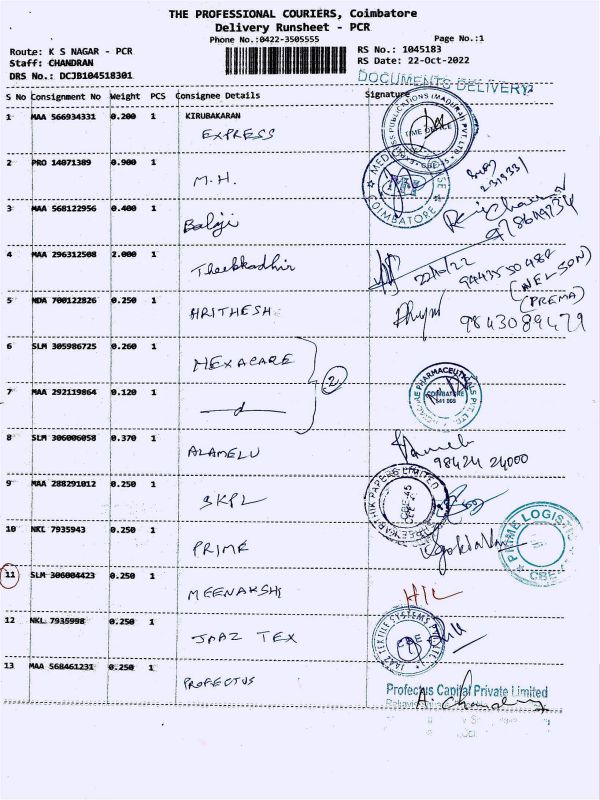 THE PROFESSIONAL COURIERS, Coimbatore
Delivery Runsheet - PCR
Phone No.:0422-3505555
Page No.:1
Route: K S NAGAR - PCR
RS No.: 1045183
Staff: CHANDRAN
RS Date: 22-Oct-2022
DRS No.: DCJB104518301
DOCUMENTS DELIVERY
S No Consignment No Weight PCS Consignee Details Signature
1 MAA 566934331 0.200 1 KIRUBAKARAN
EXPRESS
TIME OFFICE
2 PRO 14071389 0.900 1
M.H.
COIMBATORE
3 MAA 568122956 0.400 1
Balaji
4 MAA 296312508 2.000 1
Theekkadhir
22/10/22
(NELSON)
5 NDA 700122826 0.250 1
HRITHESH
(PREMA)
9843089479
6 SLM 305986725 0.260 1
HEXACARE
2
7 MAA 292119864 0.120 1
PHARMACEUTICALS PVT. LTD
COIMBATORE
8 SLM 306006058 0.370 1
ALAMELU
98424 24000
9 MAA 288291012 0.250 1
SKPL
PAPERS LIMITED
10 NKL 7935943 0.250 1
PRIME
PRIME LOGISTIC
CBE
11 SLM 306004423 0.250 1
MEENAKSHI
H/L
12 NKL 7935998 0.250 1
JAAZ TEX
JAAZ TEXTILE SYSTEMS
CBE
13 MAA 568461231 0.250 1
PROFECTUS
Profectus Capital Private Limited